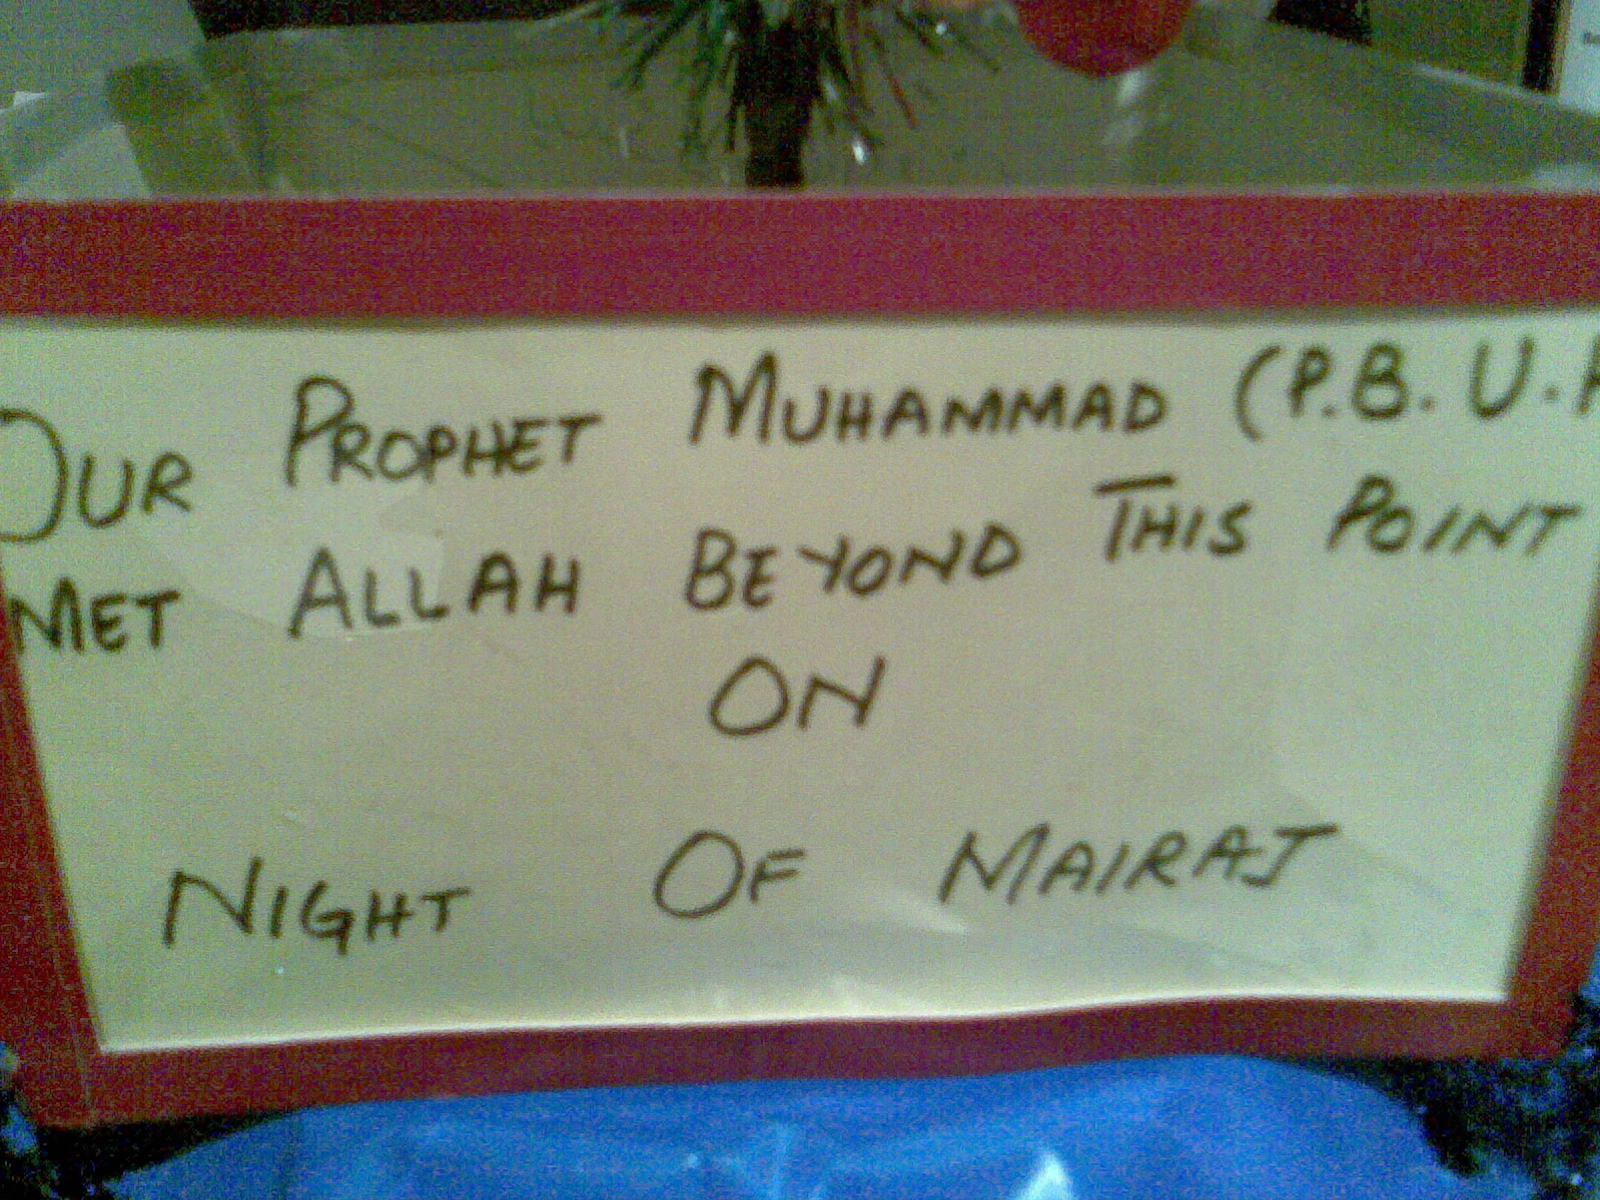 OUR PROPHET MUHAMMAD (P.B.U.H
MET ALLAH BEYOND THIS POINT
ON
NIGHT OF MAIRAJ